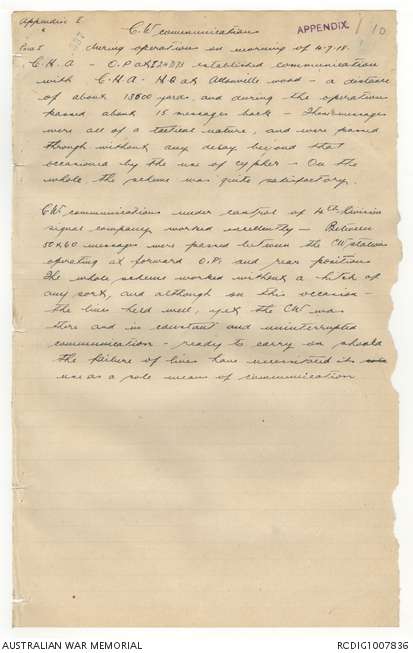 Appendix I
APPENDIX. 10
CW communications
Para 5
during operations on morning of 4-7-18.
C.H.A - O.P. at established communication
with C.H.A. H.Q at Allonville wood - a distance
of about 13500 yards, and during the operations
passed about 15 messages back - These messages
were all of a tactical nature, and were passed
through without any delay beyond that
occasioned by the use of cypher - On the
whole the scheme was quite satisfactory.
CW communications under control of 4th Division
signal company worked excellently - Between
50 & 60 messages were passed between the CW stations
operating at forward O.P. and rear positions
The whole scheme worked without a hitch of
any sort, and although on this occasion -
the lines held well, yet the CW was
there and in constant and uninterrupted
communication - ready to carry on should
the failure of lines have necessitated its
use as a sole means of communication
AUSTRALIAN WAR MEMORIAL
RCDIG1007836